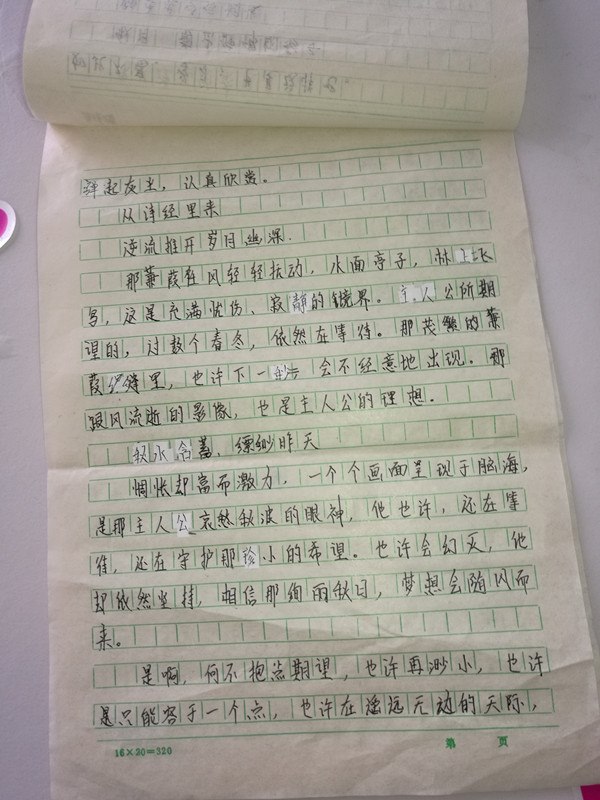 弹起灰尘，认真欣赏。
从诗经里来
逆流推开岁月幽深.
那蒹葭在风轻轻扶动，水面亭子，林
，这是充满忧伤、寂静的镜界。主人公所期
望的，过数个春冬，依然在等待。那茂繁的蒹
葭缝里，也许下一秒，会不经意地出现。那
跟风流逝的影像，也是主人公的理想。
秋水含蓄、缥缈昨天
惆怅却富而激力，一个个画面呈现于脑海，
是那主人公哀愁秋波的眼神，他也许，还在等
待，还在守护那珍小的希望。也许会幻灭，他
却依然坚持，相信那绚丽秋日，梦想会随风而
来。
是啊，何不抱点期望，也许再渺小，也许
是只能容于一个点，也许在遥远无边的天际，
16×20=320
第 页